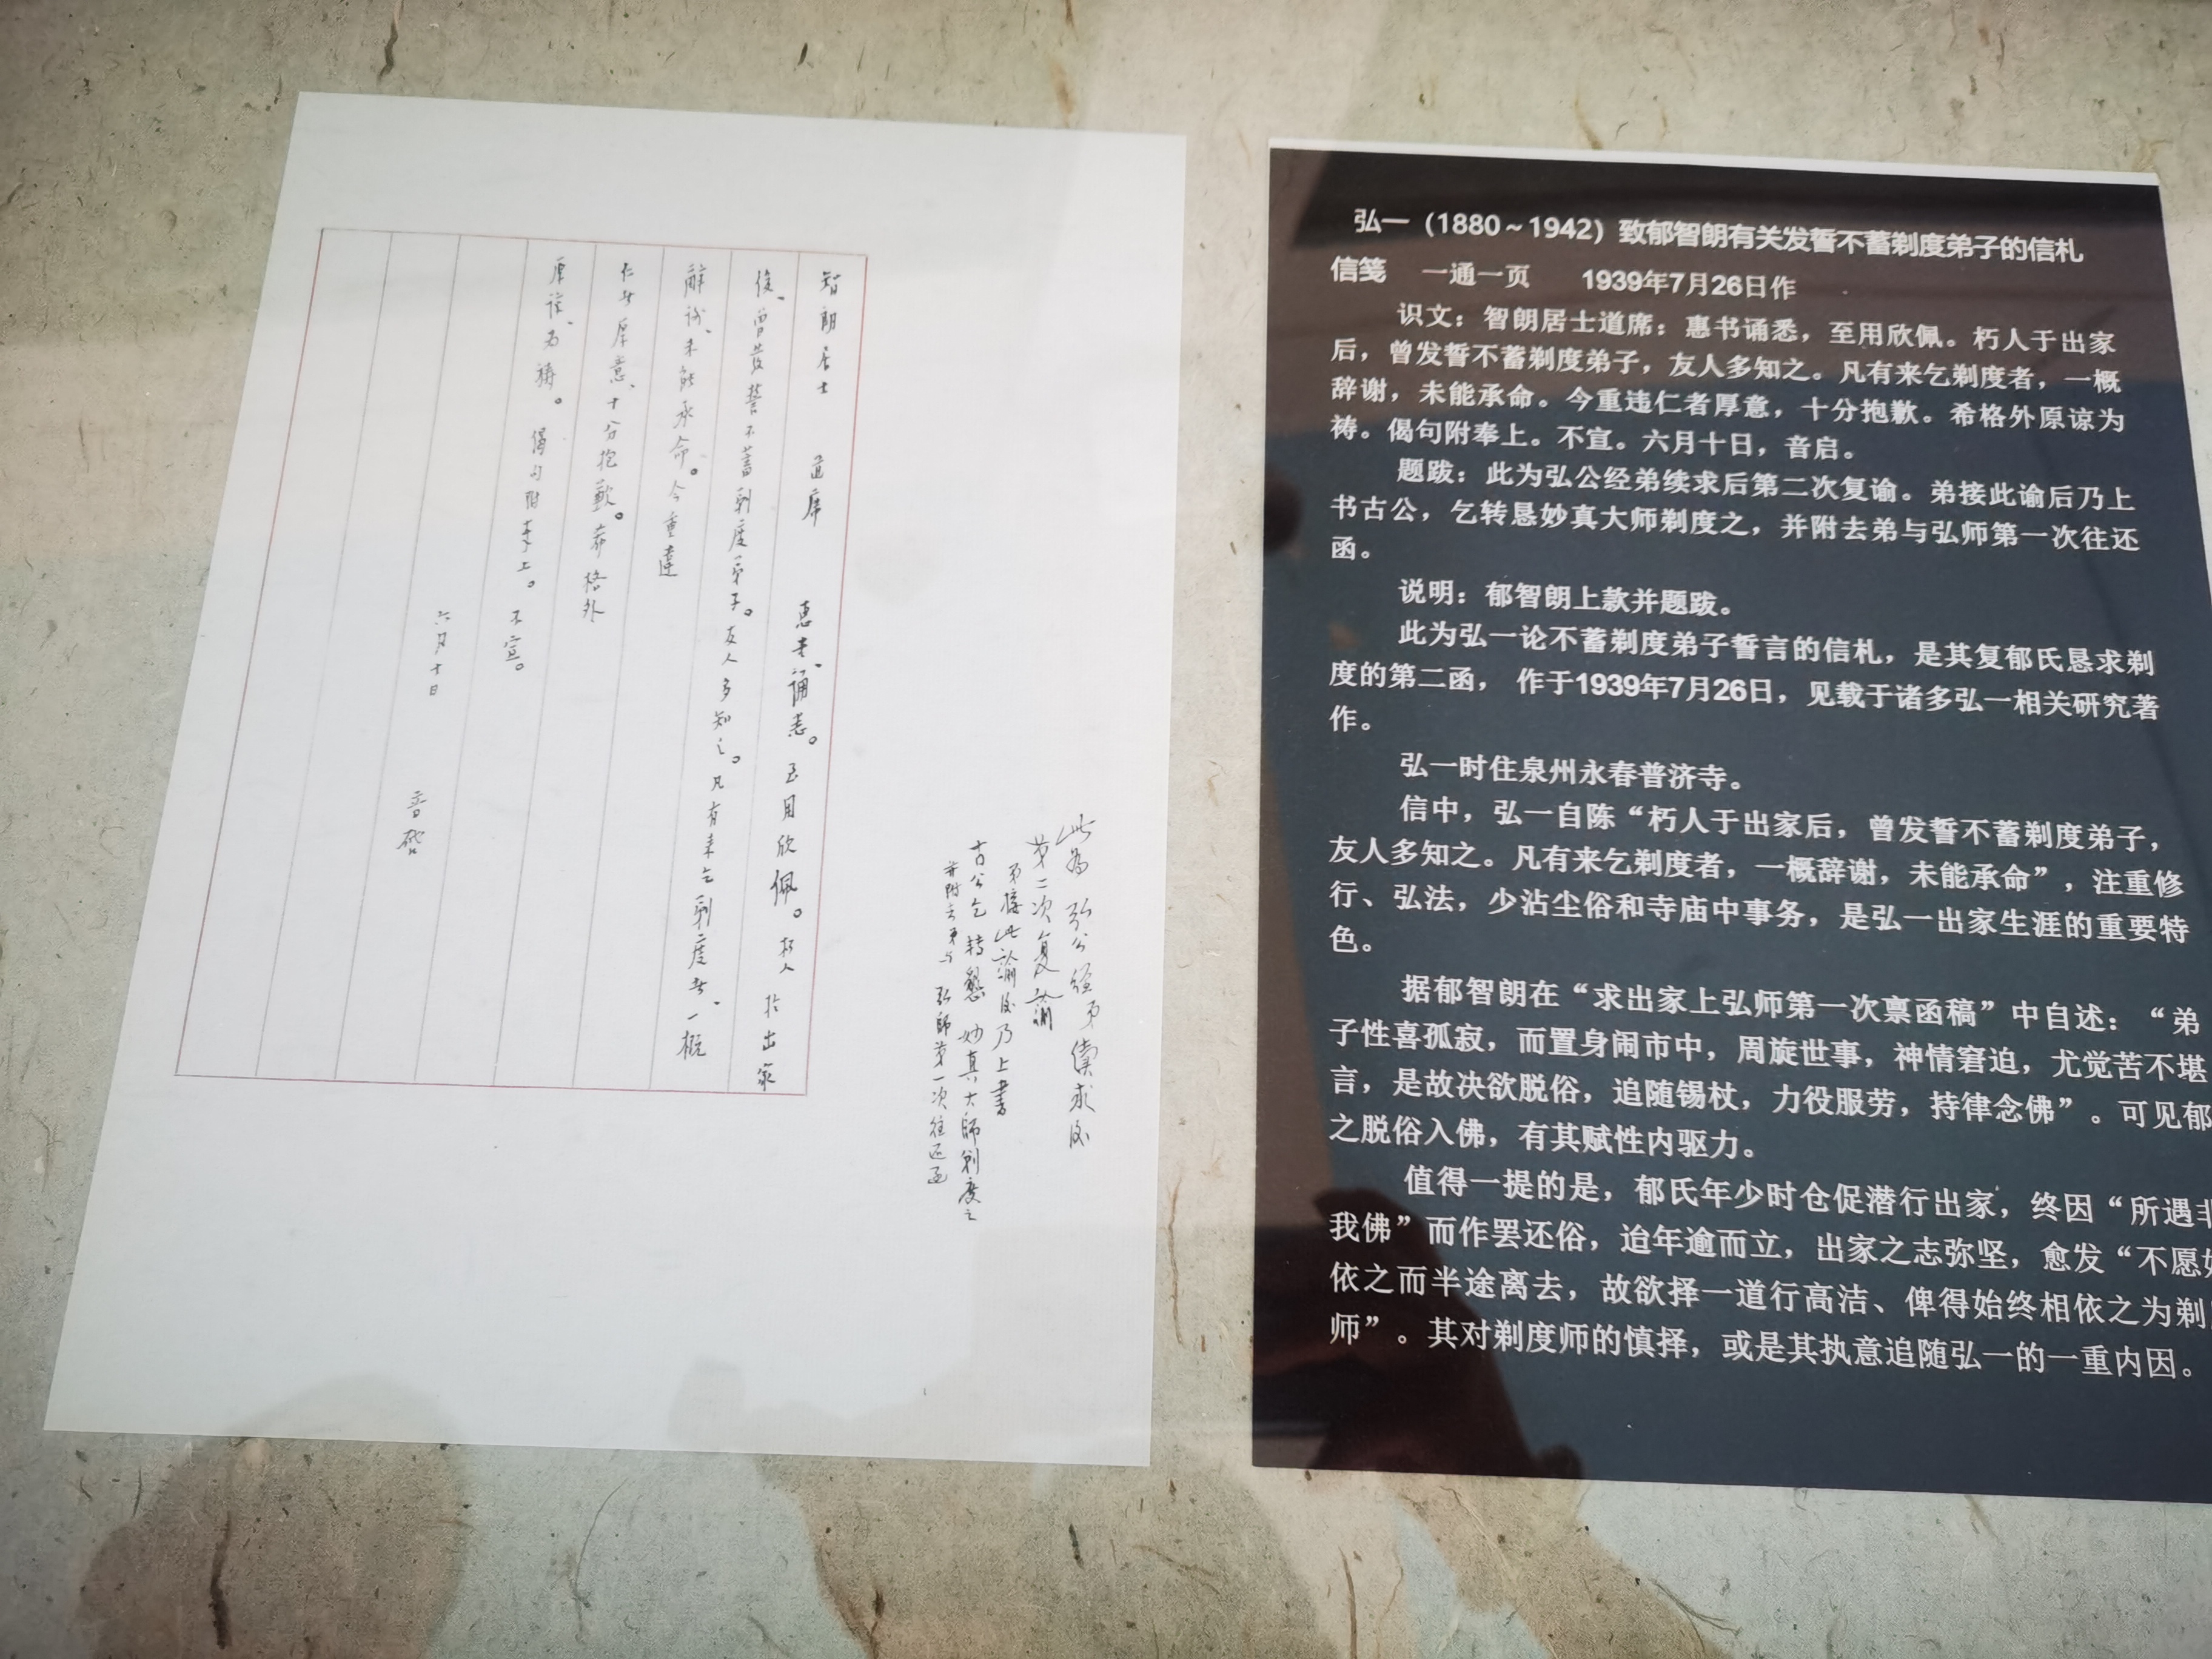 智朗居士 道席 惠書誦悉。至用欣佩。朽人於出家
後、曾發誓不蓄剃度弟子。友人多知之。凡有来乞剃度者、一概
辭謝、未能承命。今重違
仁者厚意、十分抱歉。希格外
原諒、为祷。偈句附奉上。不宣。
六月十日 音啓
此為 弘公經弟續求後
第二次复諭
弟接此諭後乃上書
古公乞轉懇 妙真大師剃度之
并附去弟与 弘師第一次往还函
弘一（1880～1942）致郁智朗有关发誓不蓄剃度弟子的信札
信笺 一通一页 1939年7月26日作
识文：智朗居士道席：惠书诵悉，至用欣佩。朽人于出家
后，曾发誓不蓄剃度弟子，友人多知之。凡有来乞剃度者，一概
辞谢，未能承命。今重违仁者厚意，十分抱歉。希格外原谅为
祷。偈句附奉上。不宣。六月十日，音启。
题跋：此为弘公经弟续求后第二次复谕。弟接此谕后乃上
书古公，乞转恳妙真大师剃度之，并附去弟与弘师第一次往还
函。
说明：郁智朗上款并题跋。
此为弘一论不蓄剃度弟子誓言的信札，是其复郁氏恳求剃
度的第二函， 作于1939年7月26日，见载于诸多弘一相关研究著
作。
弘一时住泉州永春普济寺。
信中，弘一自陈“朽人于出家后，曾发誓不蓄剃度弟子，
友人多知之。凡有来乞剃度者，一概辞谢，未能承命”，注重修
行、弘法，少沾尘俗和寺庙中事务，是弘一出家生涯的重要特
色。
据郁智朗在“求出家上弘师第一次禀函稿”中自述：“弟
子性喜孤寂，而置身闹市中，周旋世事，神情窘迫，尤觉苦不堪
言，是故决欲脱俗，追随锡杖，力役服劳，持律念佛”。可见郁
之脱俗入佛，有其赋性内驱力。
值得一提的是，郁氏年少时仓促潜行出家，终因“所遇非
我佛”而作罢还俗，迨年逾而立，出家之志弥坚，愈发“不愿
依之而半途离去，故欲择一道行高洁、俾得始终相依之为剃
师”。其对剃度师的慎择，或是其执意追随弘一的一重内因。